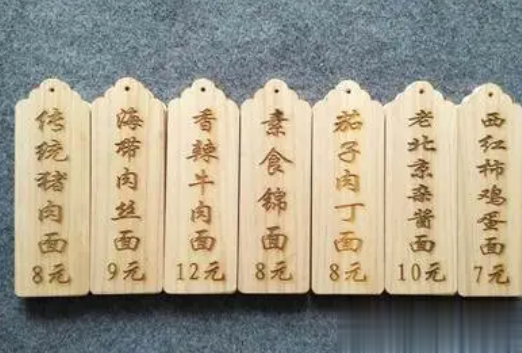 传统猪肉面
8元
海带肉丝面
9元
香辣牛肉面
12元
素食锦面
8元
茄子肉丁面
8元
老北京杂酱面
10元
西红柿鸡蛋面
7元